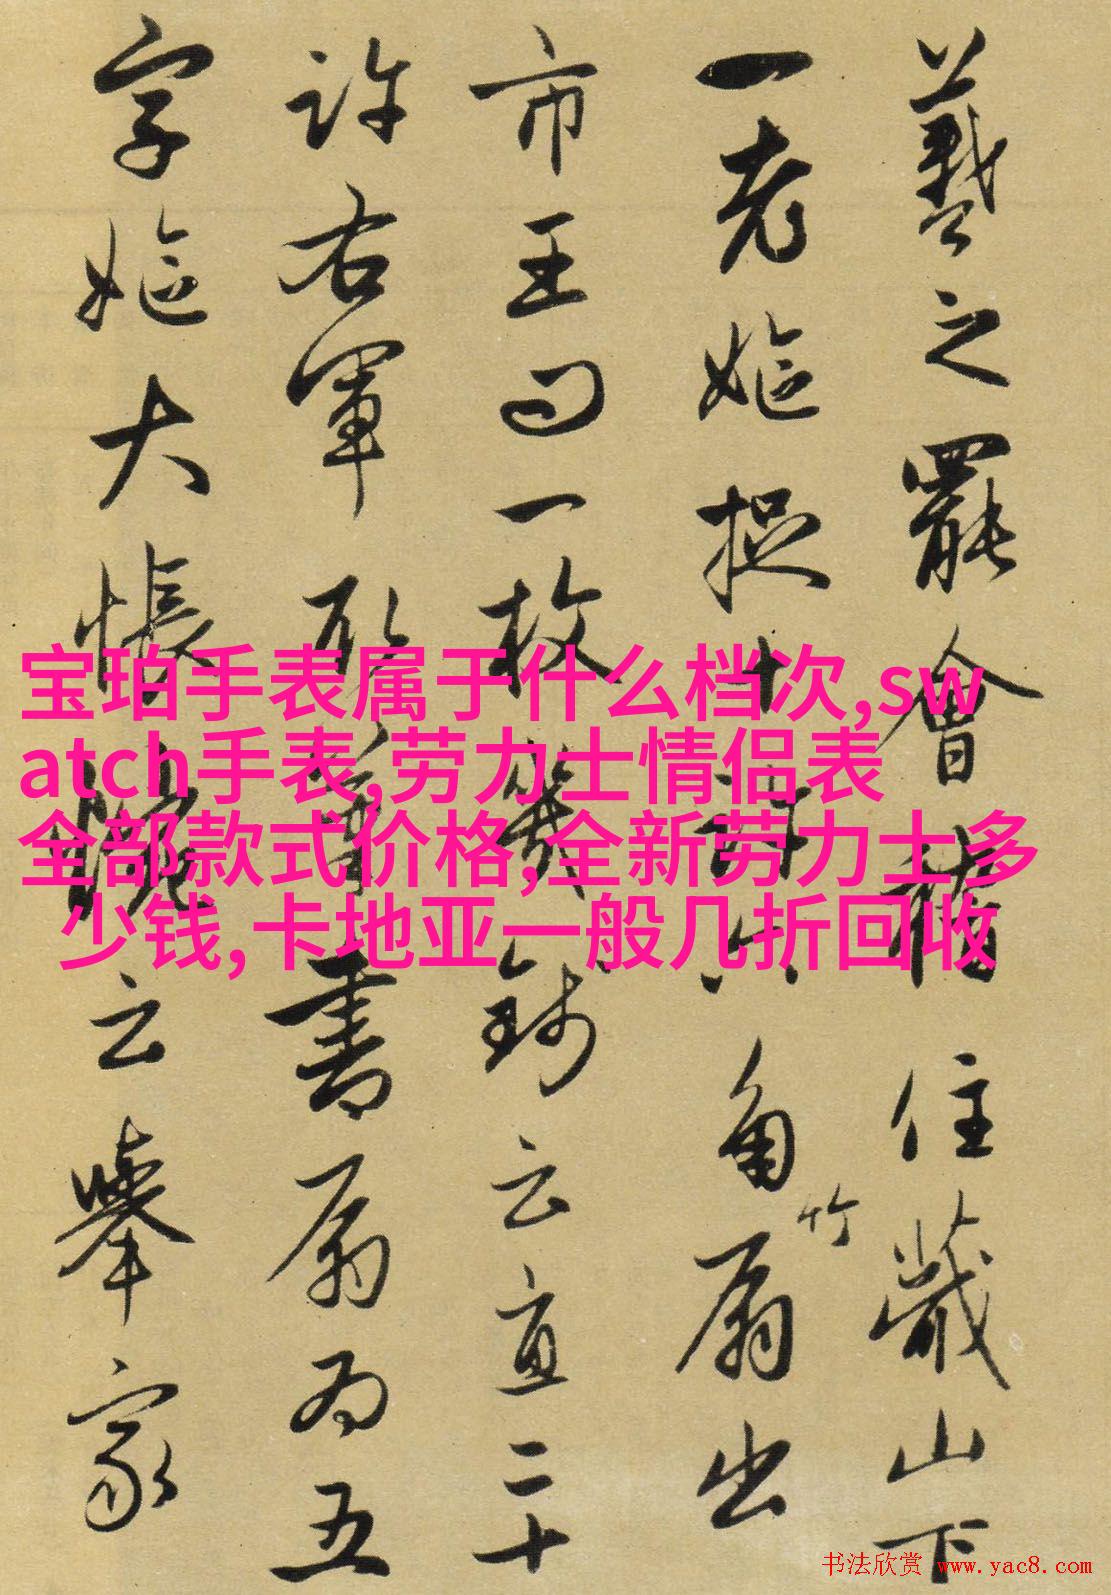 羲之罷會稽住蕺山下
一老嫗捉十許六角竹扇出
市王問一枚幾錢云直二十
許右軍取筆書扇為五
字嫗大悵惋云舉家
宝珀手表属于什么档次,sw
atch手表,劳力士情侣表
全部款式价格,全新劳力士多
少钱,卡地亚一般几折回收
书法欣赏 www.yac8.com